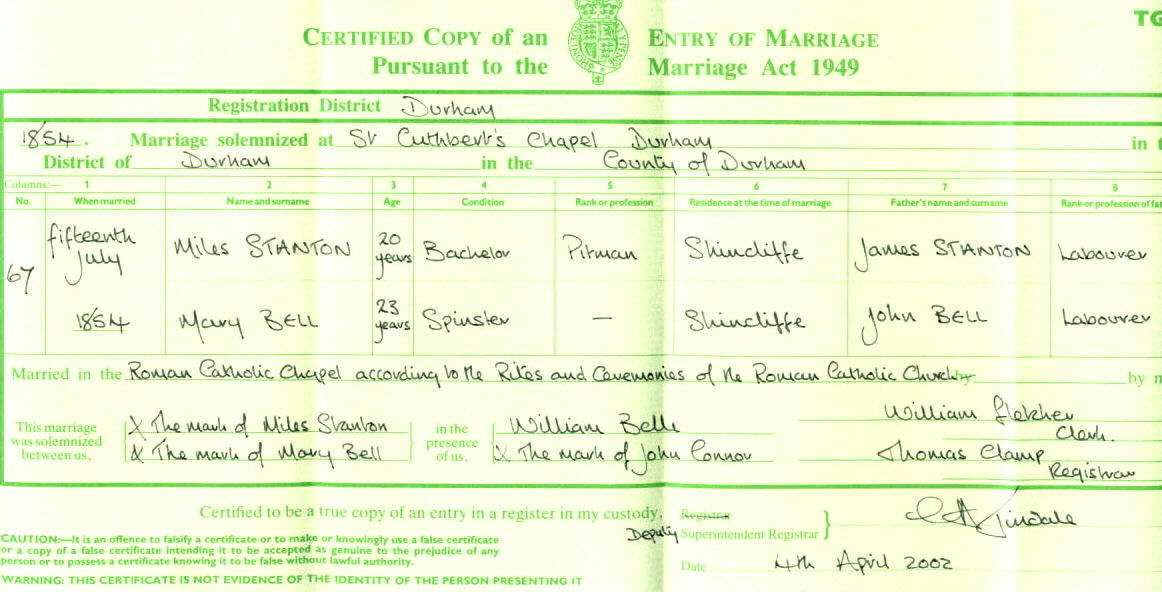 TG
CERTIFIED COPY of an ENTRY OF MARRIAGE
Pursuant to the Marriage Act 1949
Registration District Durham
1854. Marriage solemnized at St Cuthbert's Chapel Durham in t
District of Durham in the County of Durham
Columns:— 1 2 3 4 5 6 7 8
No. When married Name and surname Age Condition Rank or profession Residence at the time of marriage Father's name and surname Rank or profession of fat
67 fifteenth July Miles STANTON 20 years Bachelor Pitman Shincliffe James STANTON Labourer
1854 Mary BELL 23 years Spinster — Shincliffe John BELL Labourer
Married in the Roman Catholic Chapel according to the Rites and Ceremonies of the Roman Catholic Church by by m
This marriage was solemnized between us, X The mark of Miles Stanton in the presence of us, William Bell William Fletcher Clerk.
X The mark of Mary Bell X The mark of John Connor Thomas Clamp Registrar
Certified to be a true copy of an entry in a register in my custody, Registrar
Deputy Superintendent Registrar Tindale
CAUTION:—It is an offence to falsify a certificate or to make or knowingly use a false certificate
or a copy of a false certificate intending it to be accepted as genuine to the prejudice of any
person or to possess a certificate knowing it to be false without lawful authority.
Date 4th April 2002
WARNING: THIS CERTIFICATE IS NOT EVIDENCE OF THE IDENTITY OF THE PERSON PRESENTING IT